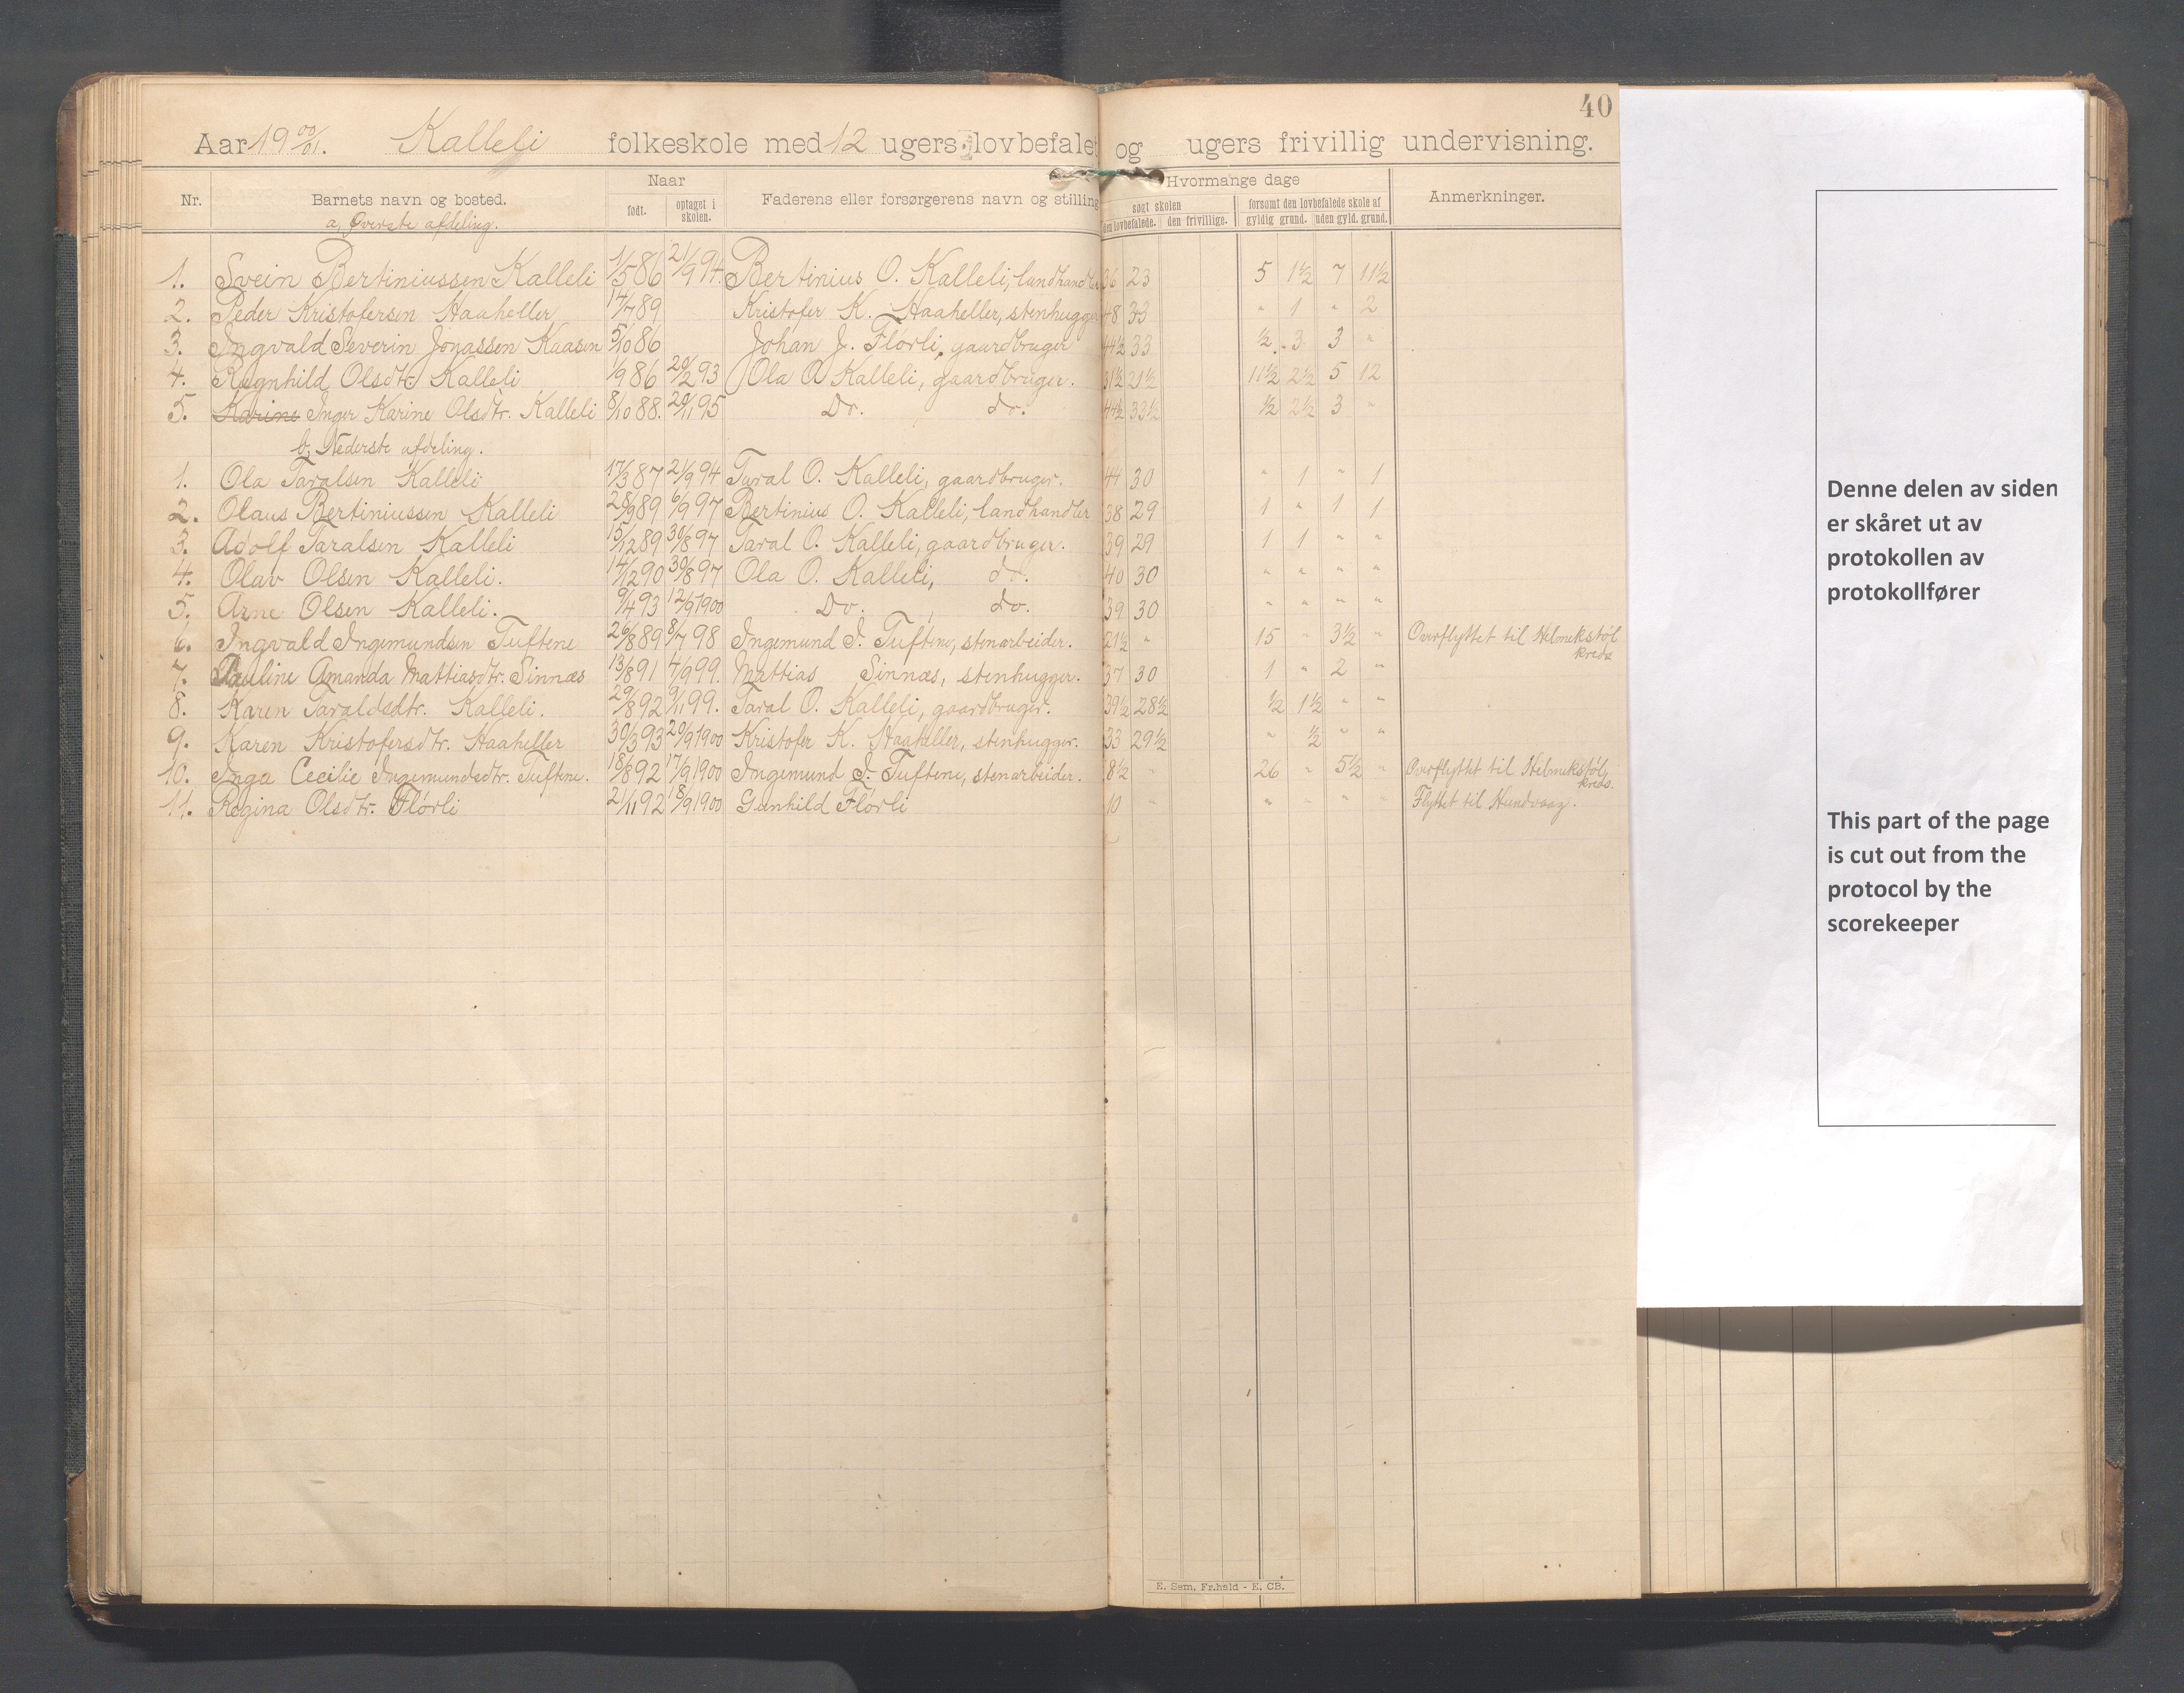 40
Aar 19 00/01. Kalleli folkeskole med 12 ugers lovbefalet og ugers frivillig undervisning.
Nr. Barnets navn og bosted. Naar Faderens eller forsørgerens navn og stilling Hvormange dage Anmerkninger.
født. optaget i skolen. søgt skolen forsømt den lovbefalede skole af
den lovbefalede. den frivillige. gyldig grund. uden gyld. grund.
a, Øverste afdeling.
1. Svein Bertiniussen Kalleli 1/5 86 21/9 94. Bertinius O. Kalleli, landhandler 36 23 5 1½ 7 11½
2. Peder Kristofersen Haaheller 14/7 89 Kristofer K. Haaheller, stenhugger 48 33 " 1 " 2
3. Ingvald Severin Jonassen Kaasen 5/10 86 Johan J. Flørli, gaardbruger 44½ 33 ½ 3 3 "
4. Ragnhild Olsdtr. Kalleli 1/9 86 20/2 93 Ola O. Kalleli, gaardbruger. 31½ 21½ 11½ 2½ 5 12
5. Karine Inger Karine Olsdtr. Kalleli 8/10 88. 20/11 95 Do. do. 44½ 33½ ½ 2½ 3 "
b, Nederste afdeling.
1. Ola Taralsen Kalleli 17/3 87 21/9 94 Taral O. Kalleli, gaardbruger. 44 30 " 1 " 1
2. Olaus Bertiniussen Kalleli 28/9 89 6/9 97 Bertinius O. Kalleli, landhandler 38 29 1 " 1 1
3. Adolf Taralsen Kalleli 15/12 89 30/8 97 Taral O. Kalleli, gaardbruger. 39 29 1 1 " "
4. Olav Olsen Kalleli. 14/12 90 30/8 97 Ola O. Kalleli, do. 40 30 " " " "
5. Arne Olsen Kalleli. 9/4 93 12/9 1900 Do. do. 39 30 " " " "
6. Ingvald Ingemundsen Tuftene 26/8 89 8/7 98 Ingemund I. Tuftene, stenarbeider. 21½ " 15 " 3½ " Overflyttet til Helmikstøl kreds
7. Pauline Amanda Mattiasdtr. Sinnæs 13/8 91 4/9 99. Mattias Sinnæs, stenhugger. 37 30 1 " 2 "
8. Karen Taraldsdtr. Kalleli. 29/8 92 9/11 99. Taral O. Kalleli, gaardbruger. 39½ 28½ ½ 1½ " "
9. Karen Kristofersdtr. Haaheller 30/3 93 20/9 1900 Kristofer K. Haaheller, stenhugger. 33 29½ " ½ " "
10. Inga Cecilie Ingemundsdtr. Tuftene. 18/8 92 17/9 1900 Ingemund I. Tuftene, stenarbeider. 8½ " 26 " 5½ " Overflyttet til Helmikstøl kreds.
11. Regina Olsdtr. Flørli 21/11 92 18/9 1900 Gunhild Flørli 10 " " " " " Flyttet til Hundvaag.
E. Sem. Fr.hald - E. CB.
Denne delen av siden
er skåret ut av
protokollen av
protokollfører
This part of the page
is cut out from the
protocol by the
scorekeeper